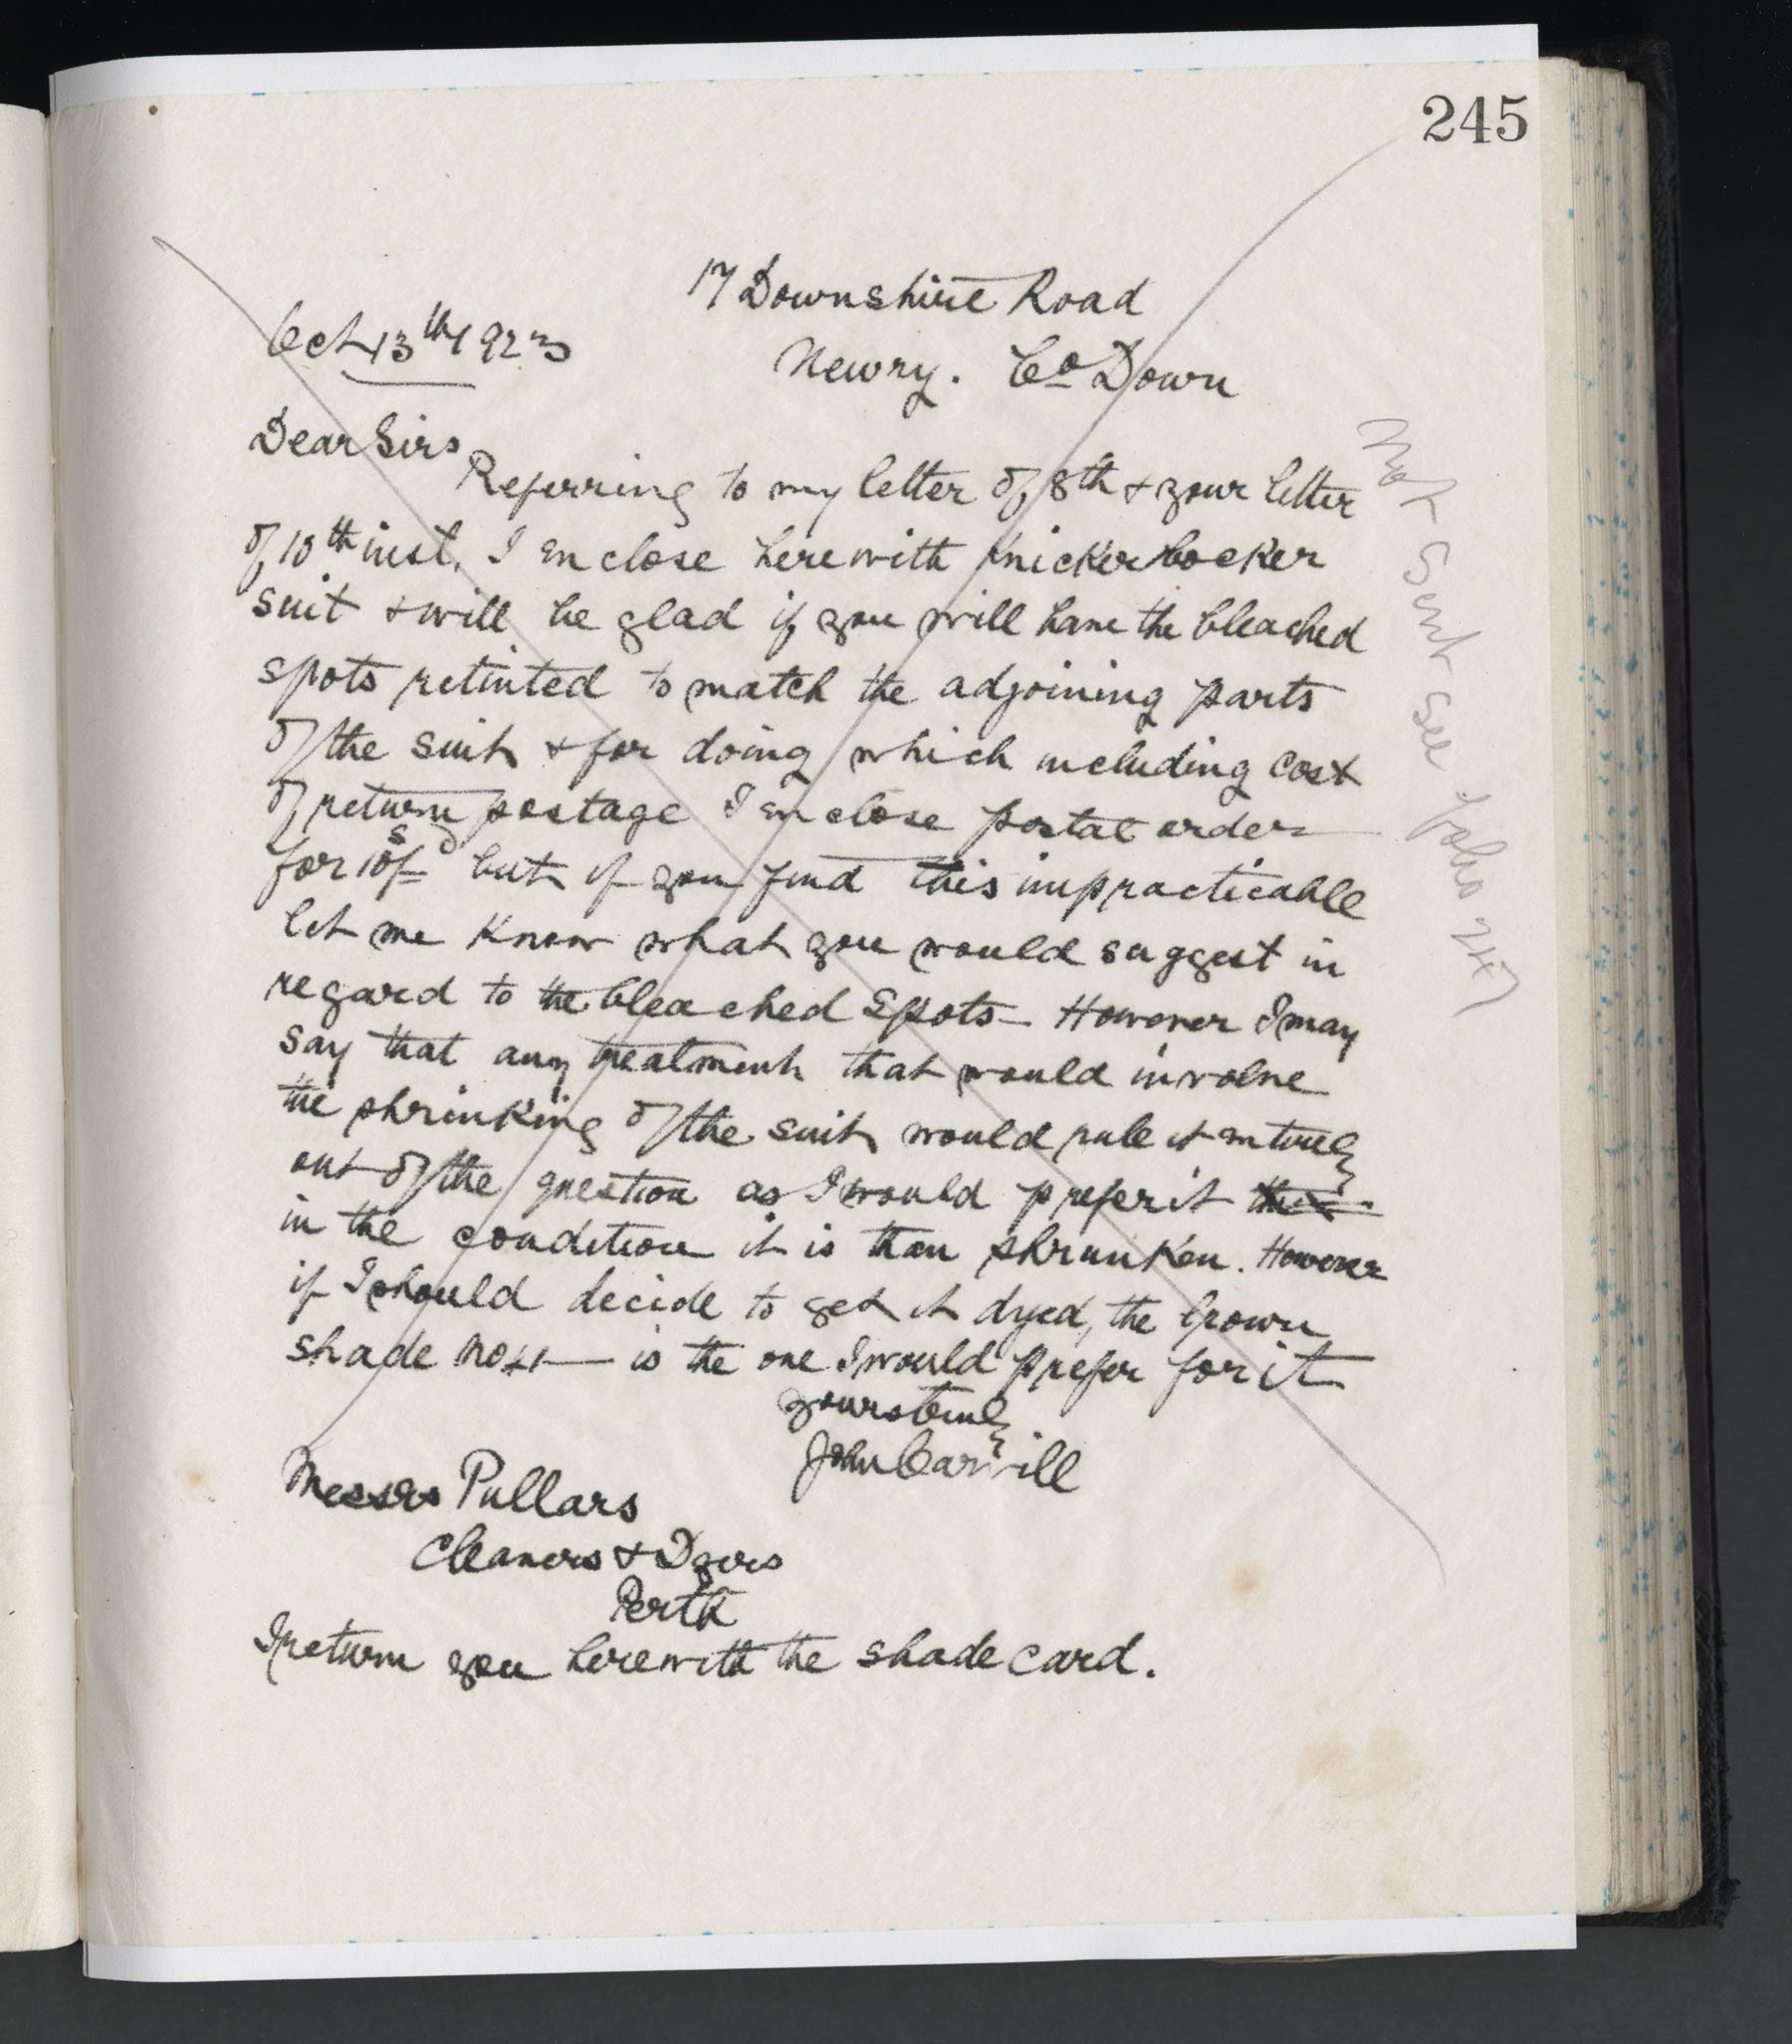 245
17 Downshire Road
Oct 13th 1923
Newry. Co Down
Dear Sirs
Referring to my letter of 8th & your letter
of 10th inst. I enclose herewith Knickerbocker
suit & will be glad if you will have the bleached
spots retinted to match the adjoining parts
of the suit & for doing which including cost
of return postage I enclose postal order
for 10s/- but if you find this impracticable
let me know what you would suggest in
regard to the bleached spots - However I may
say that any treatment that would involve
the shrinking of the suit would rule it entirely
out of the question as I would prefer it
in the condition it is than shrunken. However
if I should decide to get it dyed, the brown
shade No — is the one I would prefer for it
yours truly
John Carvill
Messrs Pullars
Cleaners & Dyers
Perth
I return you herewith the shade card.
Not sent see folio 247